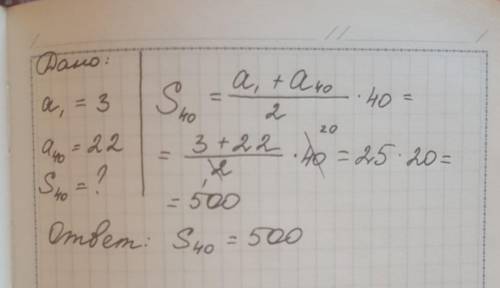 Дано:
a₁ = 3
a₄₀ = 22
S₄₀ = ?
S₄₀ = (a₁ + a₄₀)/2 · 40 =
= (3 + 22)/2 · 40 20 = 25 · 20 =
= 500
Ответ: S₄₀ = 500